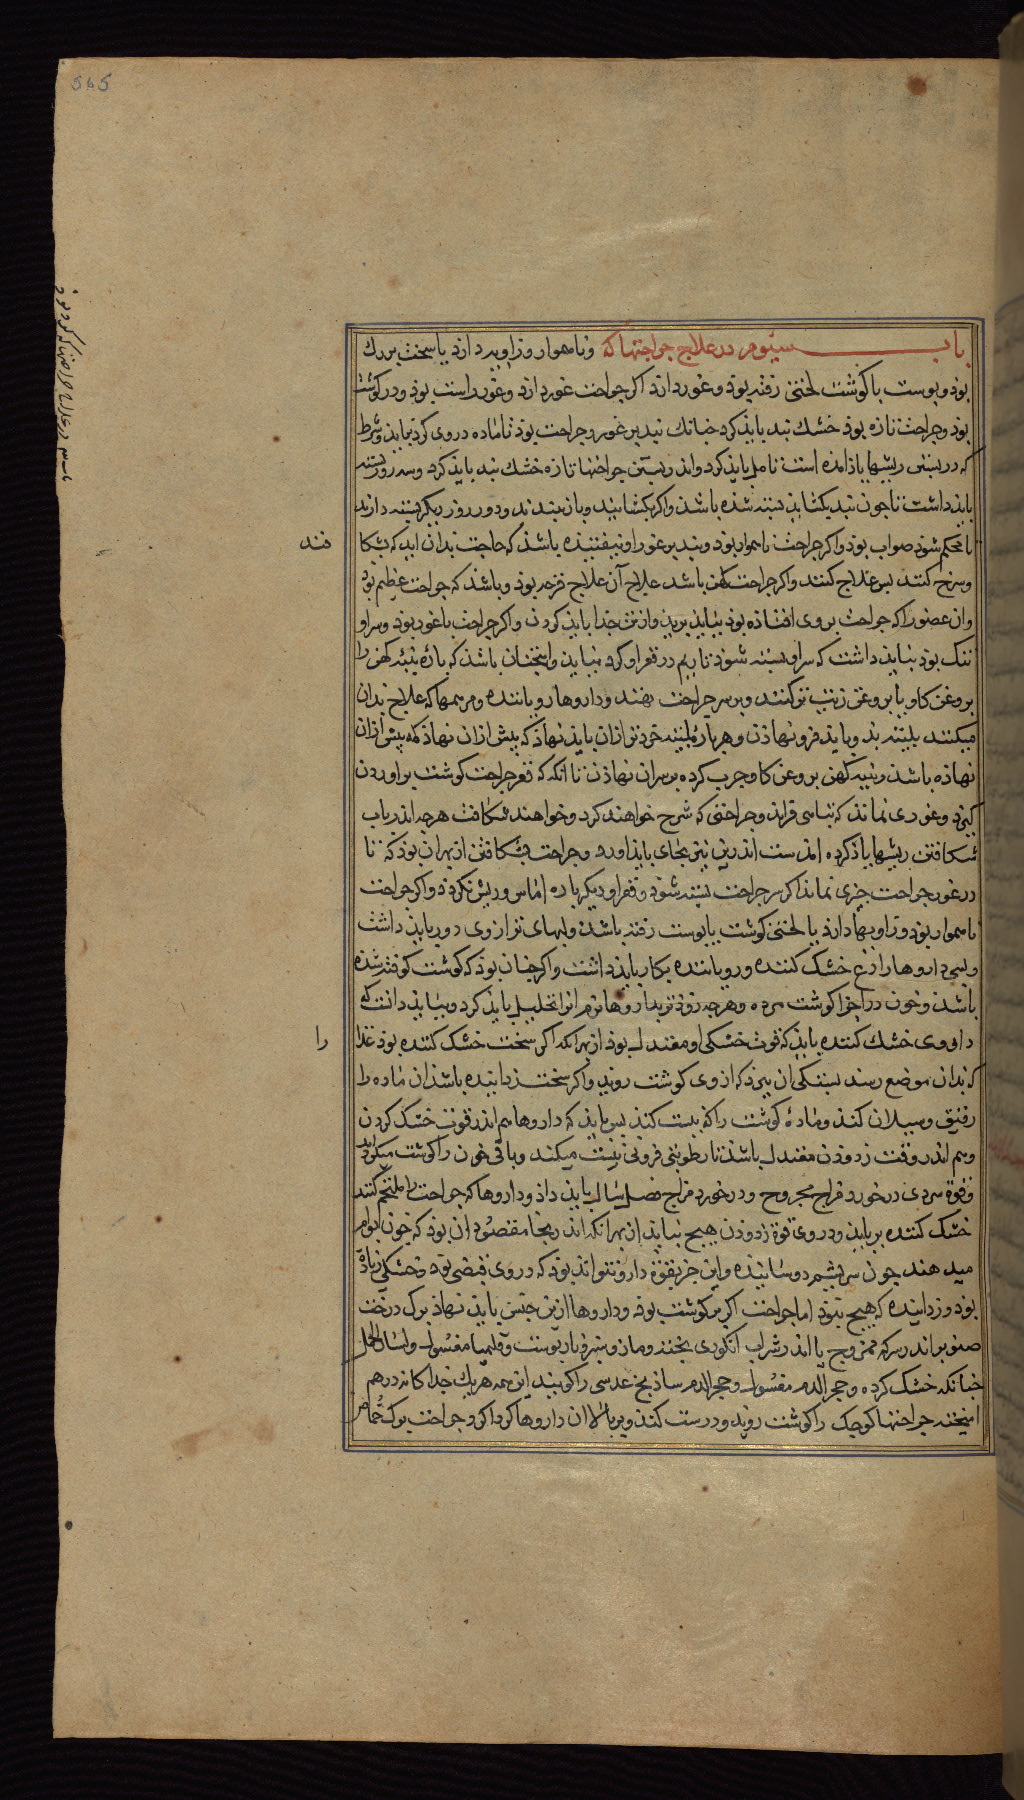 565
باب سیوم در علاج جراحتها که و ناهموار و زاویه دارد یا سخت بزرك
بوذ و پوست با گوشت لختی رفته بوذ و غور دارد اکر جراحت غور دارد و غور راست بوذ و در کوشت
بوذ و جراحت تازه بوذ خشك بند بایذ کرد جنانك تدبیر غور و جراحت بوذ تا ماده در وی کرد نیاید و شرط
که در بستن ریشها یاذ امذه است تامل بایذ کرد و اندر بستن جراحتها تازه خشك بند بایذ کرد و سه روز بسته
بایذ داشت تا جون بند بکشایند بسته شذه باشذ و اکر بکشایند و باز بندند و دو روز دیکر بسته دارند
تا محکم شوذ صواب بوذ و اکر جراحت ناهموار بوذ و تدبیر غور او نیفتیذه باشذ که حاجت بدان اید که بشکا
فند
و سرخ کنند بس علاج کنند و اکر جراحت کهن باشد علاج آن علاج قرحه بوذ و باشذ که جراحت عظیم بوذ
وان عضو را که جراحت بر وی افتاذه بوذ بباید برید و از تن جدا بایذ کردن و اکر جراحت با غور بوذ و سر او
تنك بوذ نبایذ داشت که سر او بسته شوذ تا ریم در قعر او کرد نیاید و اینجنان باشذ که پارهٔ پنبه کهن را
بروغن کاو یا بروغن زیت تر کنند و بر سر جراحت نهند و داروها رویاننده و مرهمها که علاج بدان
میکنند بلیته بدو باید فرو نهاذن و هر بار بلیته خردتر ازان باید نهاذ که بیش ازان نهاذ که بیش ازان
نهاذه باشذ و پنبه کهن بروغن کاو جرب کرده بر سر ان نهاذن تا انکه که قعر جراحت کوشت براوردن
کیرد و غوری نماند که بباسی فراید و جراحتی که شرح خواهند کرد و خواهند شکافت هرجه اندر باب
شکافتن ریشها یاذ کرده امذست اندرین نیز بجای بایذ اورد و جراحت بشکافتن از بهر ان بوذ که تا
در غور جراحت جیزی نماند اکر سر جراحت بسته شود و قعر او دیکرباره اماس و ریش نکردد و اکر جراحت
ناهموار بوذ و زاویها دارد یا لختی کوشت یا پوست رفته باشذ ولهای تر از وی دور بایذ داشت
و لیکن داروها را از خشك کننده و رویاننده بکار بایذ داشت و اکر جنان بوذ که کوشت کوفته شذه
باشذ و خون در اجزا کوشت مرده و هرجه زوذتر بداروها نرم انرا تحلیل بایذ کرد و ببایذ دانست که
داروی خشك کننده بایذ که قوت خشکی او معتدل بوذ از بهر انکه اکر سخت خشك کننده بوذ غذا
را
که بدان موضع رسد بستکی ان ببرذ که از وی کوشت روید و اکر سخت زداینده باشذ ان ماده را
رقیق و سیلان کند و مادهٔ کوشت را کم بیست کند بس بایذ که داروها هم اندر قوت خشك کردن
و هم اندر وقت زدودن معتدل باشذ تا رطوبتی فزونی نیست میکند و باقی خون را کوشت میکرداند
و قوة سردی در خورد مزاج مجروح و در خورد مزاج فصل سال بایذ داذ و داروها که جراحت را ملتحم کنند
خشك کننده تر بایذ و در وی قوة زدودن هیچ نبایذ از بهر انکه اندرینجا مقصود ان بوذ که خون لوام
میدهند جون سریشم دوسانیده و این جز بقوة دارو نتواند بوذ که در وی قبضی بوذ و خشکی زیاذه
بوذ و زداینده که هیچ نبوذ اما جراحت اکر بر کوشت بوذ و داروها ازین جنس بایذ نهاذ برک درخت
صنوبر اندر سرکه ممزوج یا اندر شراب انکوری بخته و مازو سبز و نار پوست و قلیمیا مغسول و لسان الحمل
جنانکه خشك کرده و حجر الدم مغسول و حجر الدم ساذنج عدسی را کویند این همه هریك جداکانه در هم
امیخته جراحتها کوجک را کوشت روید و درست کند و بر بالا ان داروها کرداکرد جراحت برك حماض